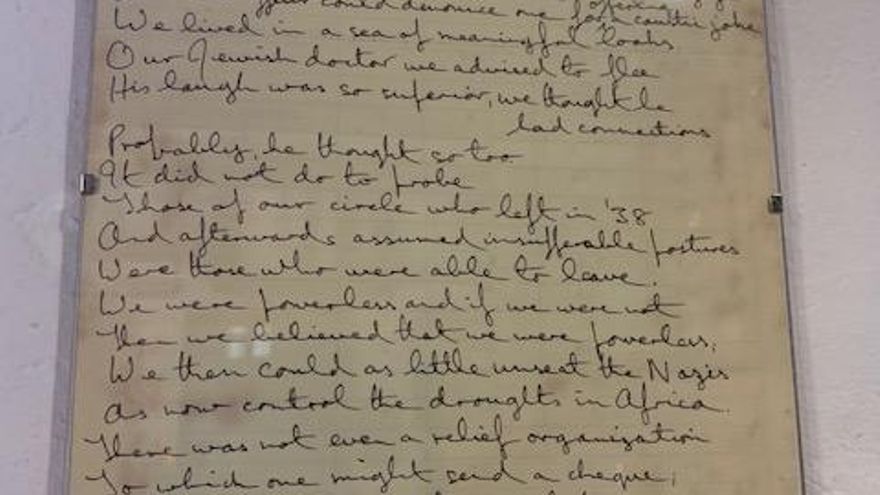 your could denounce one for a careless joke
We lived in a sea of meaningful looks
Our Jewish doctor we advised to flee
His laugh was so superior, we thought he
had connections
Probably, he thought so too
It did not do to probe
Those of our circle who left in '38
And afterwards assumed insufferable postures
Were those who were able to leave.
We were powerless and if we were not
Then we believed that we were powerless,
We then could as little unseat the Nazis
As now control the droughts in Africa.
There was not even a relief organization
To which one might send a cheque;